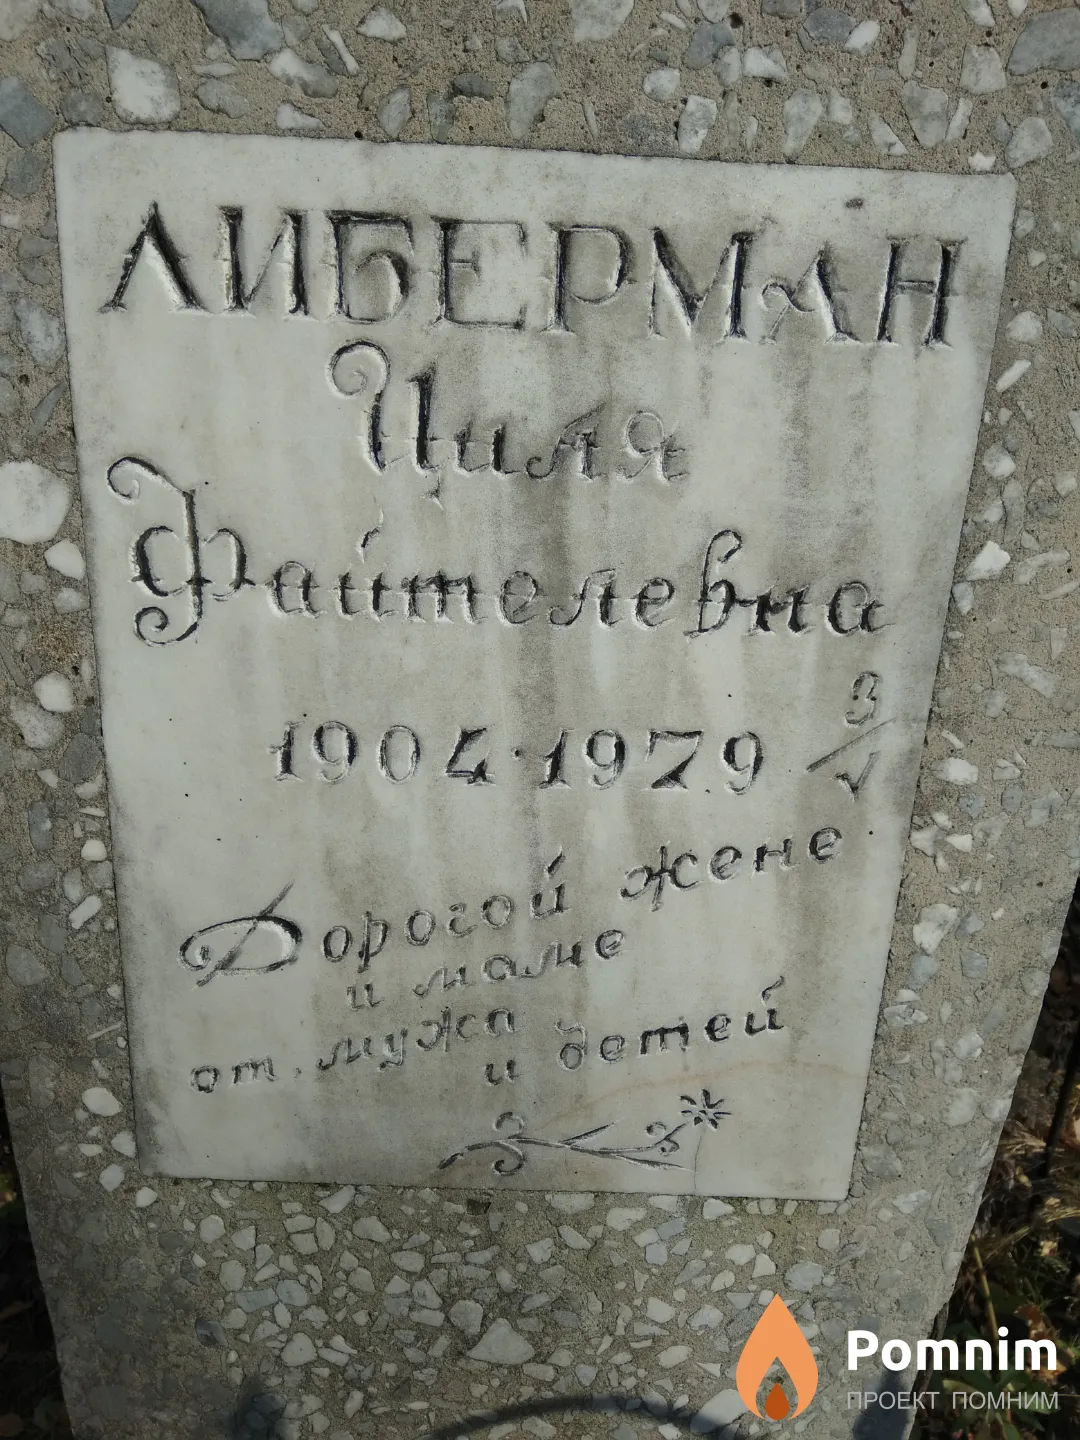 ЛИБЕРМАН
Циля
Файтелевна
1904·1979 3/V
Дорогой жене
и маме
от мужа
и детей
Pomnim
ПРОЕКТ ПОМНИМ